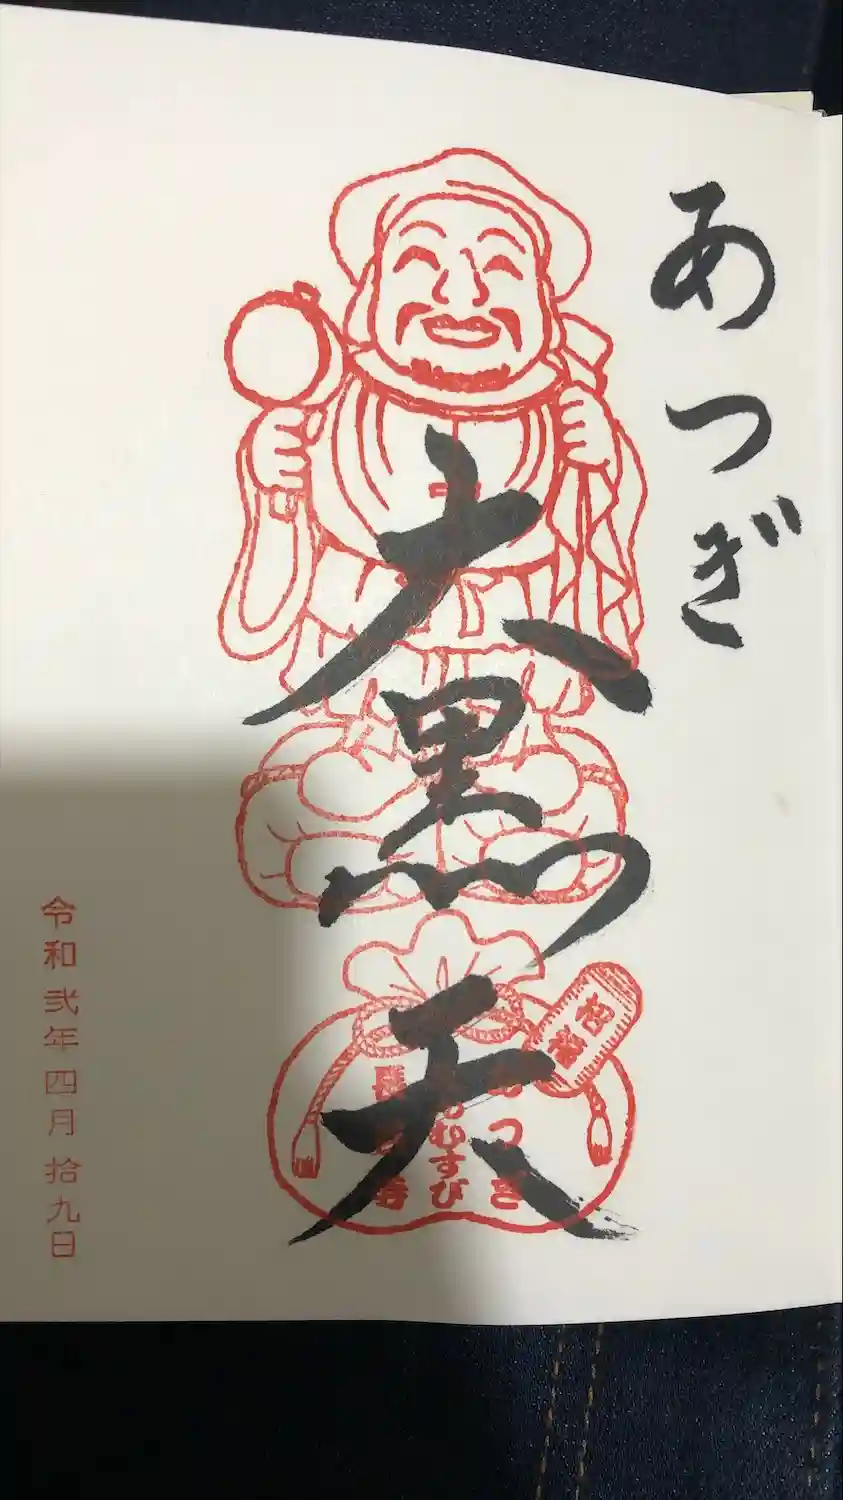 あつぎ
大黒天
招福
あつぎ
むすび
令和弐年四月拾九日